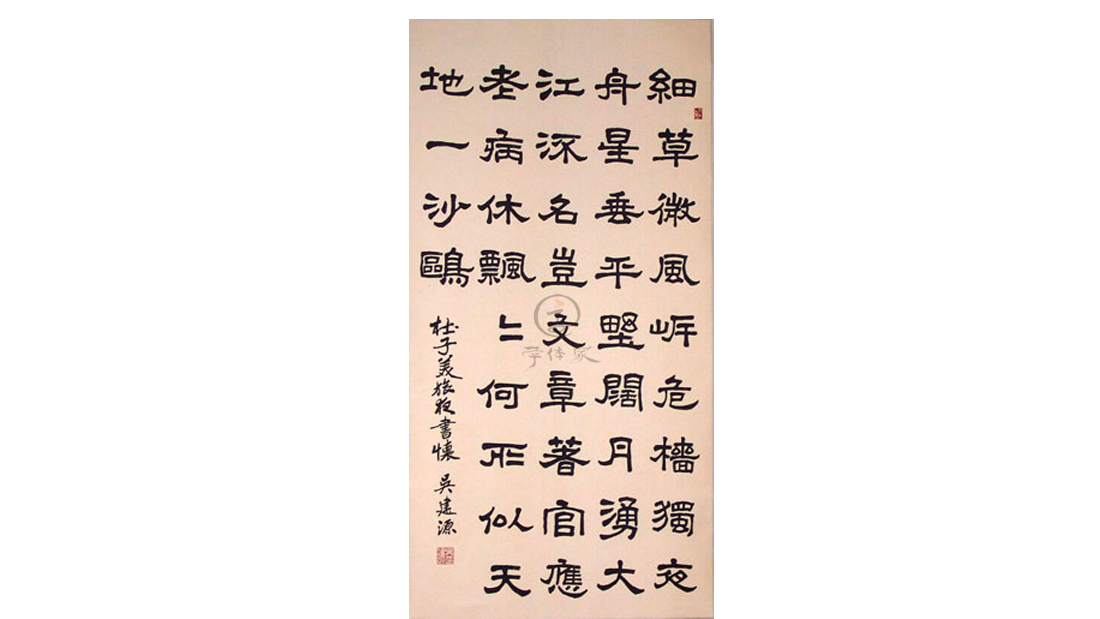 細草微風岸危檣獨夜
舟星垂平野闊月湧大
江流名豈文章著官應
老病休飄〻何所似天
地一沙鷗
杜子美旅夜書懷 吳建源
字体家